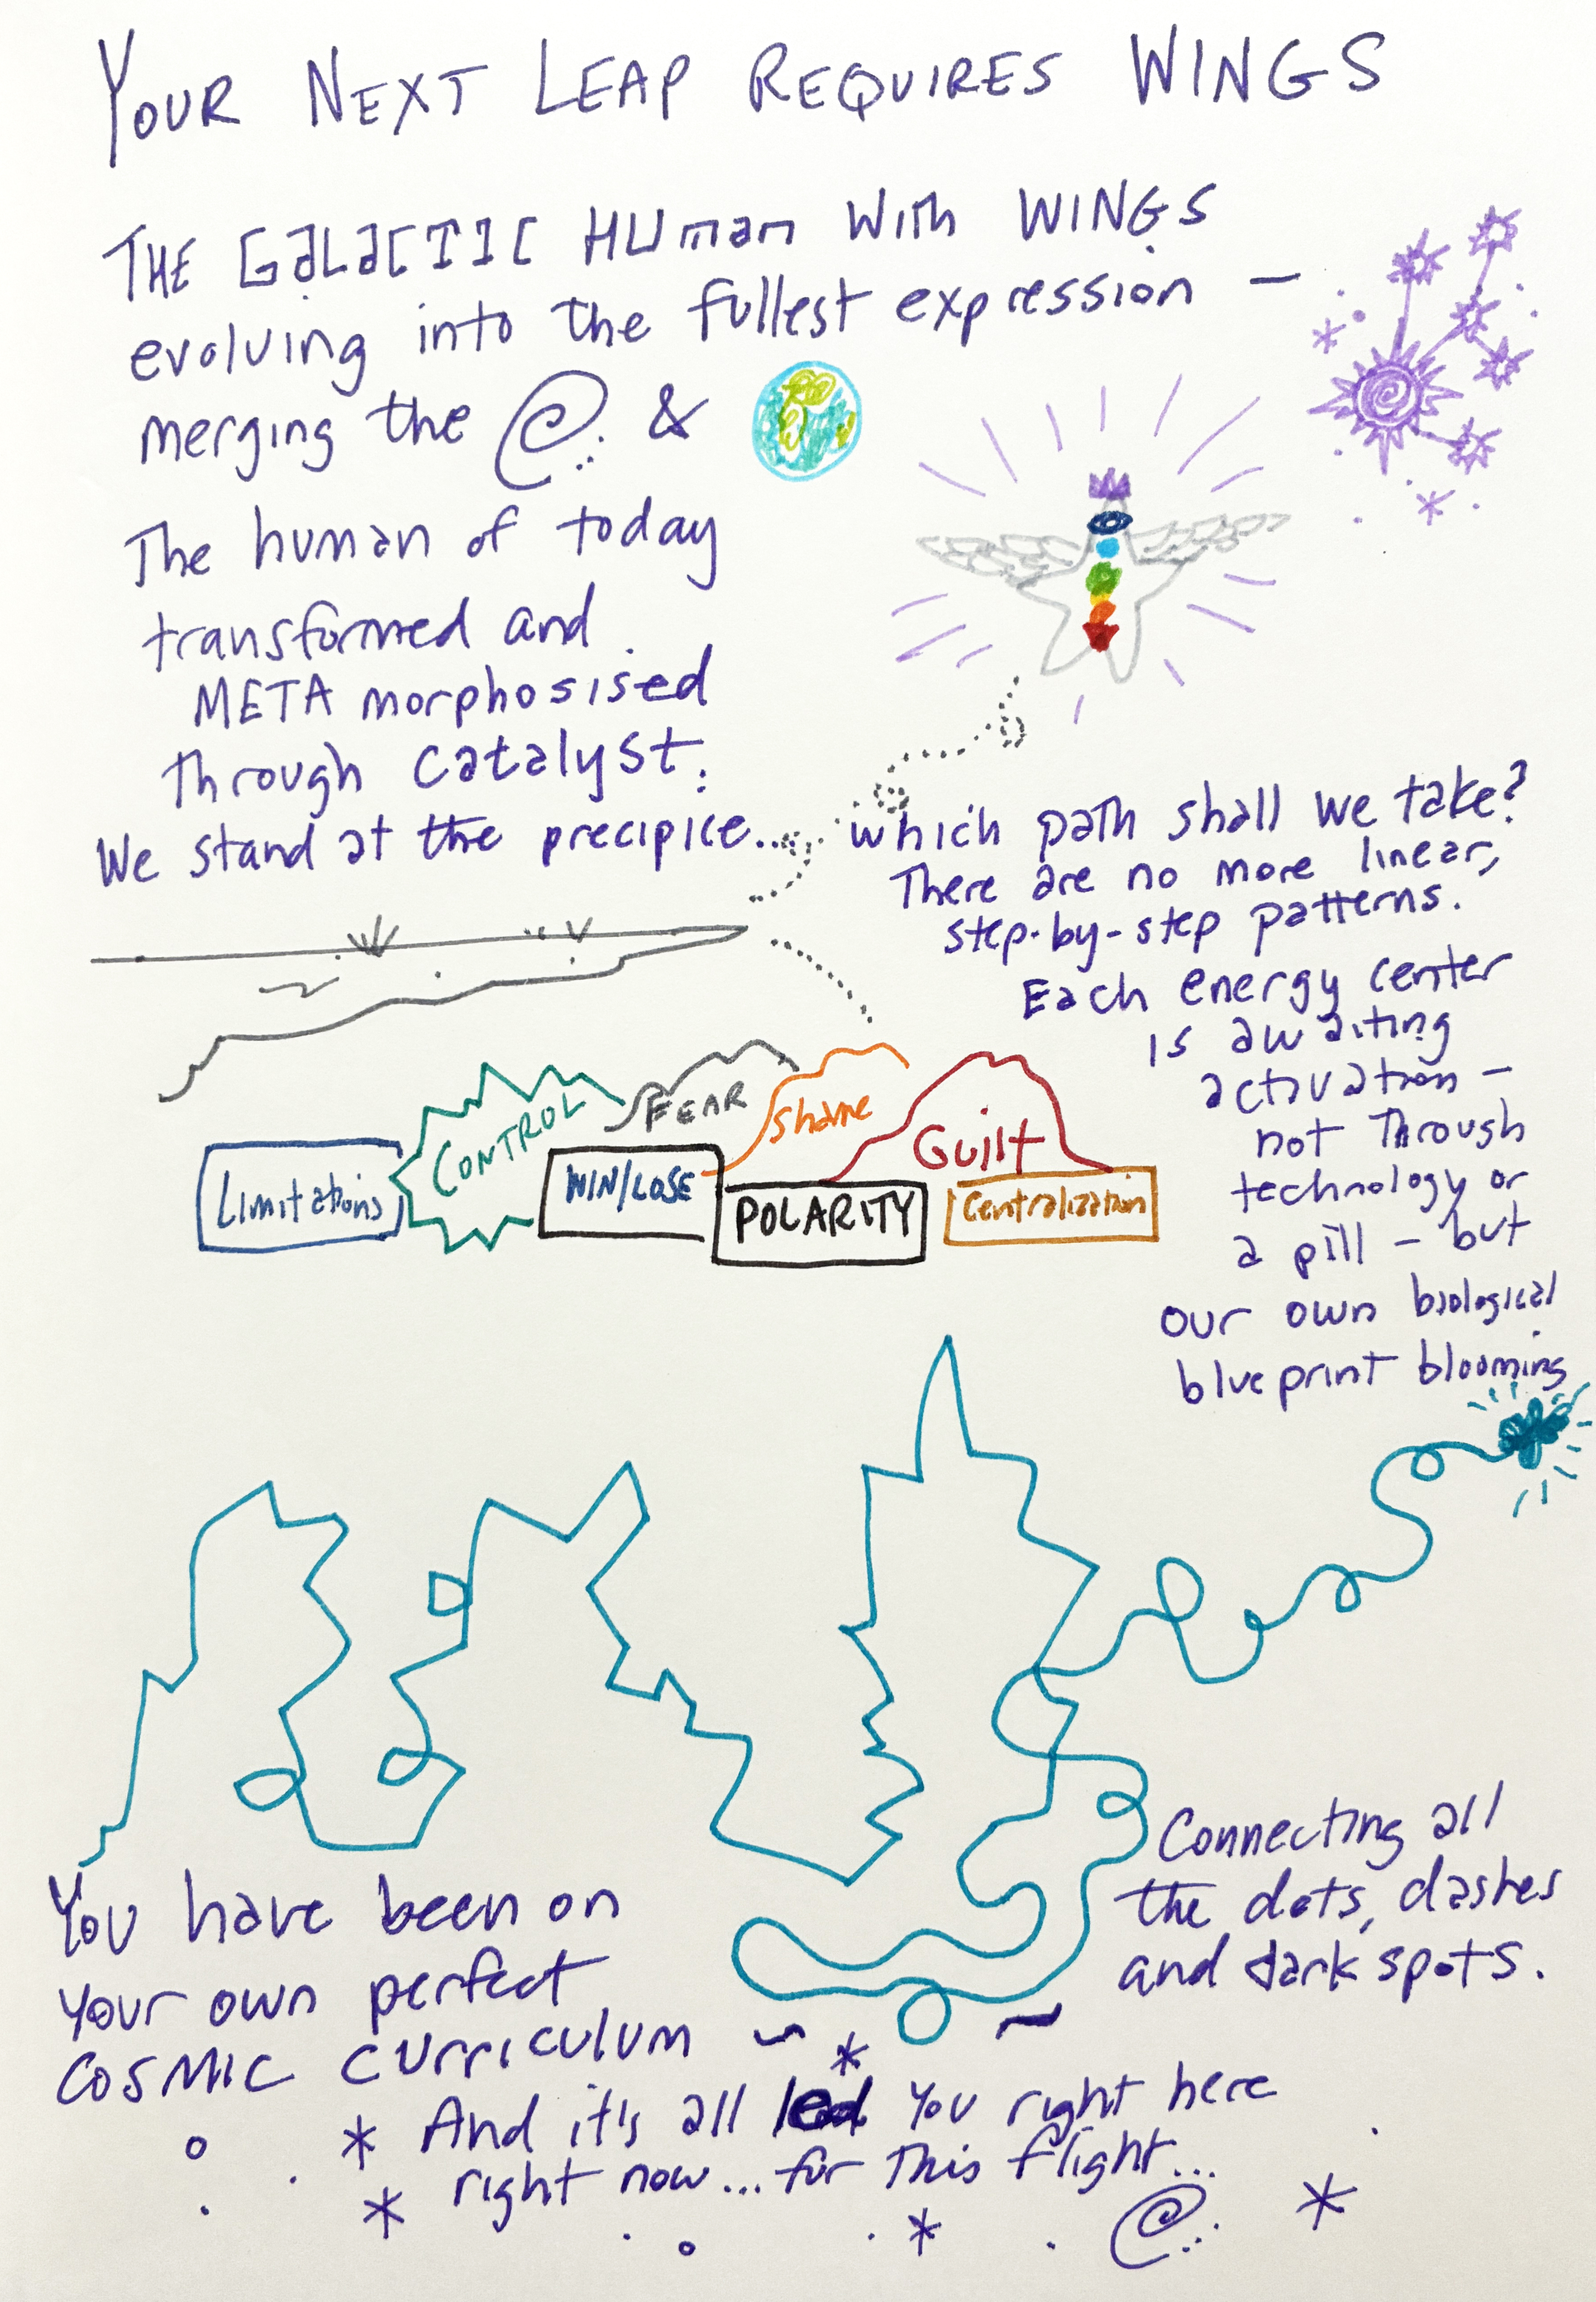 YOUR NEXT LEAP REQUIRES WINGS
THE GALACTIC HUMAN WITH WINGS
evolving into the fullest expression —
merging the &
The human of today
transformed and
META morphosised
through catalyst.
We stand at the precipice...
which path shall we take?
There are no more linear,
step-by-step patterns.
Each energy center
is awaiting
activation —
not through
technology or
a pill — but
our own biological
blueprint blooming
CONTROL
FEAR
Shame
Guilt
Limitations
WIN/LOSE
POLARITY
Centralization
You have been on
your own perfect
COSMIC curriculum ~
Connecting all
the dots, dashes
and dark spots.
* And it's all led you right here
right now... for this flight...